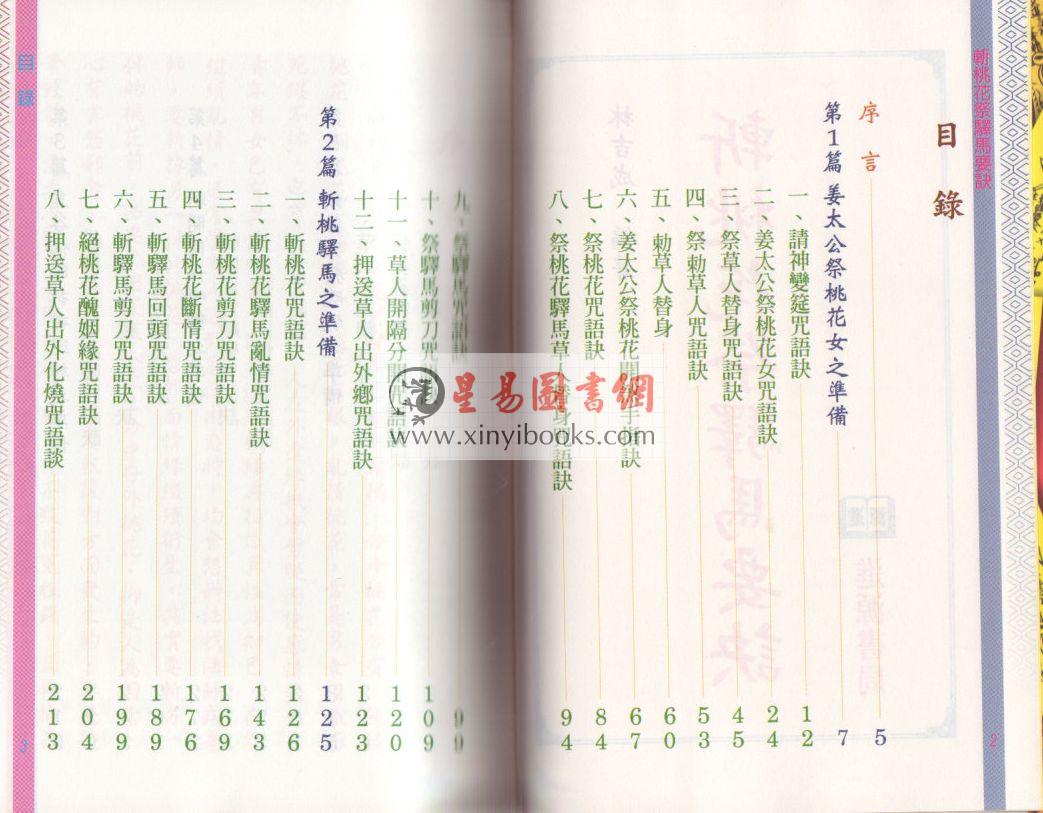 斬桃花祭驛馬要訣
目錄
序言 5
第1篇 姜太公祭桃花女之準備 7
一、請神變筵咒語訣 12
二、姜太公祭桃花女咒語訣 24
三、祭草人替身咒語訣 45
四、祭勅草人咒語訣 53
五、勅草人替身 60
六、姜太公祭桃花 語訣 67
七、祭桃花咒語訣 84
八、祭桃花驛馬草人替身咒語訣 94
2
九、祭驛馬咒語訣 99
十、祭驛馬剪刀咒 109
十一、草人開隔分開咒語訣 120
十二、押送草人出外鄉咒語訣 123
第2篇 斬桃驛馬之準備 125
一、斬桃花咒語訣 126
二、斬桃花驛馬亂情咒語訣 143
三、斬桃花剪刀咒語訣 169
四、斬桃花斷情咒語訣 176
五、斬驛馬回頭咒語訣 189
六、斬驛馬剪刀咒語訣 199
七、絕桃花醜姻緣咒語訣 204
八、押送草人出外化燒咒語談 213
目錄
3
星易圖書網
www.xinyibooks.com